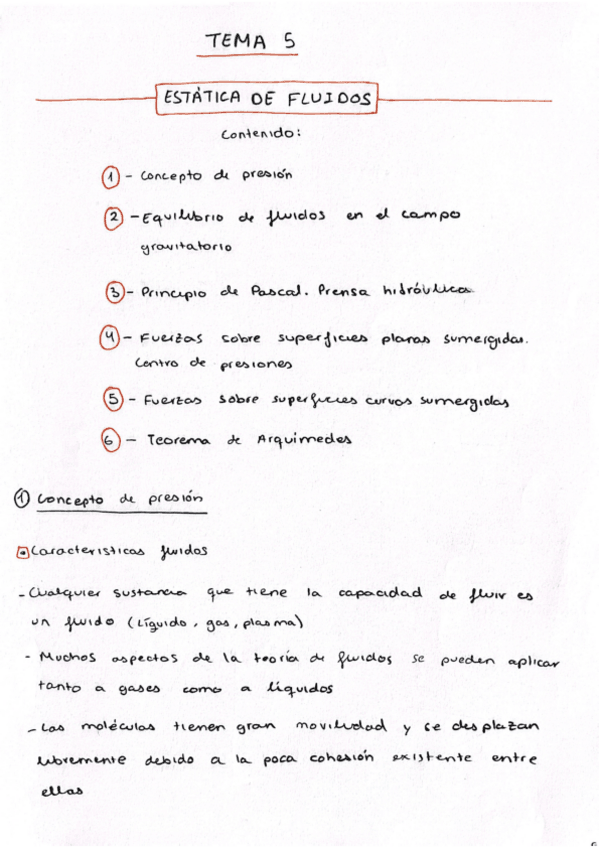 TEMA 5
ESTÁTICA DE FLUIDOS
Contenido:
1 - Concepto de presión
2 - Equilibrio de fluidos en el campo
gravitatorio
3 - Principio de Pascal. Prensa hidráulica.
4 - Fuerzas sobre superficies planas sumergidas.
Centro de presiones
5 - Fuerzas sobre superficies curvas sumergidas
6 - Teorema de Arquimedes
1 Concepto de presión
Caracteristicas fluidos
- Cualquier sustancia que tiene la capacidad de fluir es
un fluido (Líquido, gas, plasma)
- Muchos aspectos de la teoría de fluidos se pueden aplicar
tanto a gases como a líquidos
- Las moléculas tienen gran movilidad y se desplazan
libremente debido a la poca cohesión existente entre
ellas